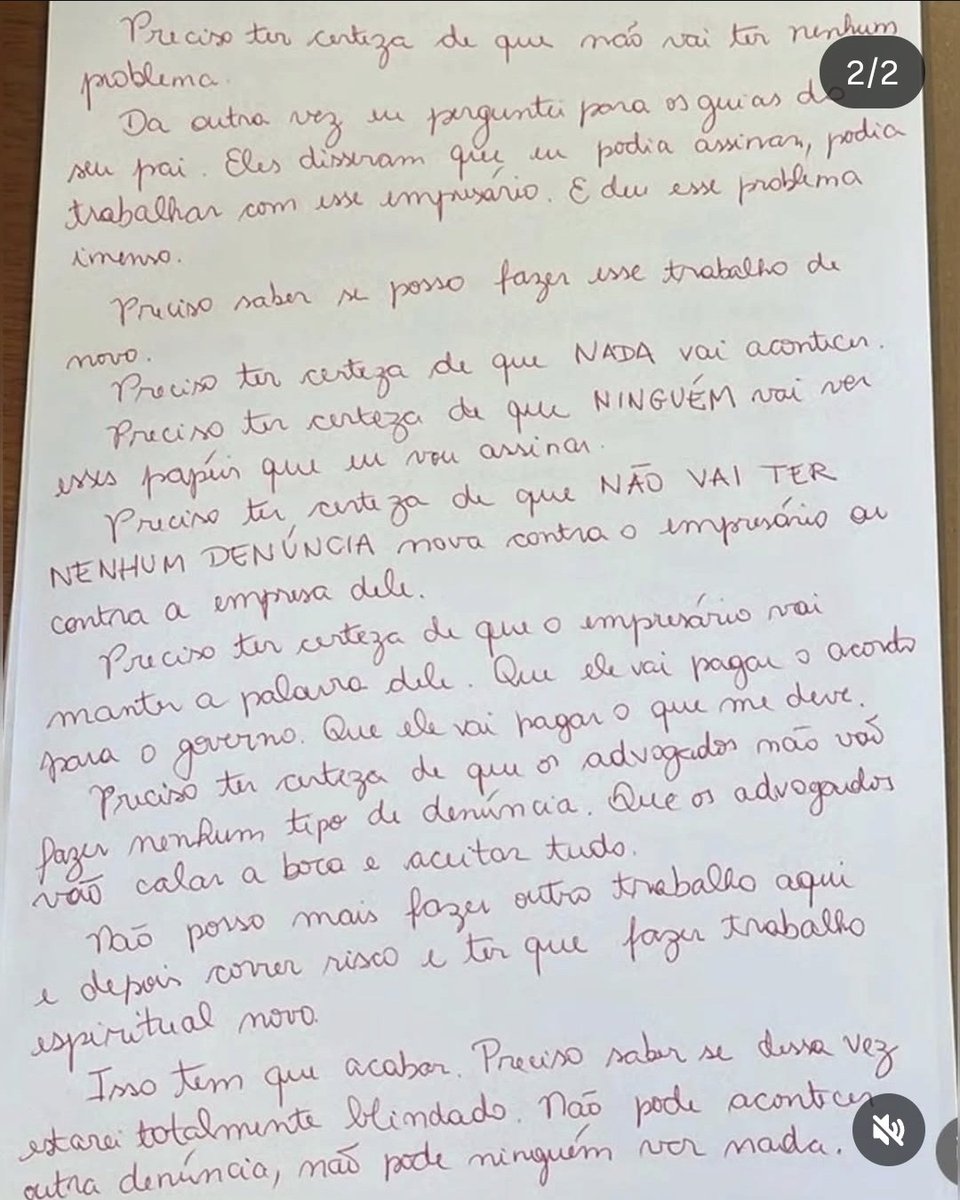 Preciso ter certeza de que não vai ter nenhum
2/2
problema.
Da outra vez eu perguntei para os guias do
seu pai. Eles disseram que eu podia assinar, podia
trabalhar com esse empresário. E deu esse problema
imenso.
Preciso saber se posso fazer esse trabalho de
novo.
Preciso ter certeza de que NADA vai acontecer.
Preciso ter certeza de que NINGUÉM vai ver
esses papéis que eu vou assinar.
Preciso ter certeza de que NÃO VAI TER
NENHUM DENÚNCIA nova contra o empresário ou
contra a empresa dele.
Preciso ter certeza de que o empresário vai
manter a palavra dele. Que ele vai pagar o acordo
para o governo. Que ele vai pagar o que me deve.
Preciso ter certeza de que os advogados não vão
fazer nenhum tipo de denúncia. Que os advogados
vão calar a boca e aceitar tudo.
Não posso mais fazer outro trabalho aqui
e depois correr risco e ter que fazer trabalho
espiritual novo.
Isso tem que acabar. Preciso saber se dessa vez
estarei totalmente blindado. Não pode acontecer
outra denúncia, não pode ninguém ver nada.